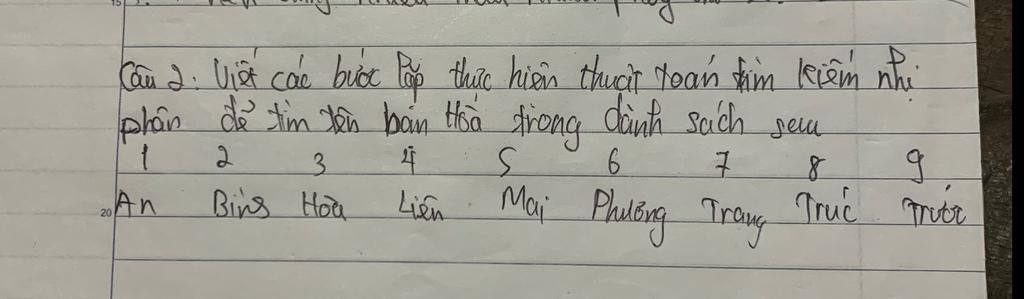 Câu 2: Viết các bước lặp thực hiện thuật toán tìm kiếm nhị
phân để tìm tên bạn Hoà trong danh sách sau
1 2 3 4 5 6 7 8 9
An Bins Hoà Liên Mai Phương Trang Trúc Trước